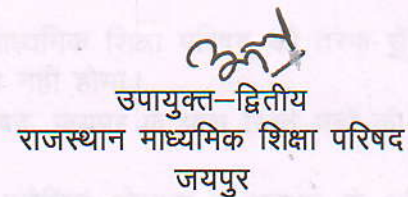 उपायुक्त–द्वितीय
राजस्थान माध्यमिक शिक्षा परिषद
जयपुर